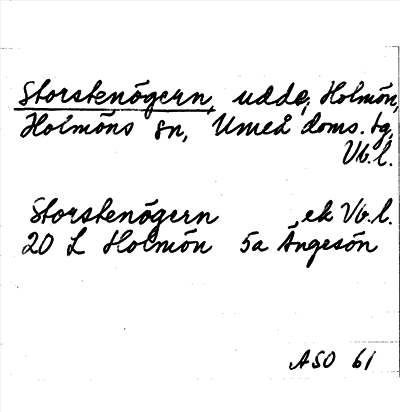 Storstenögern, udde, Holmön,
Holmöns sn, Umeå doms. tg,
Vb.l.
Storstenögern ek Vb.l.
20 L Holmön 5a Ängesön
ASO 61